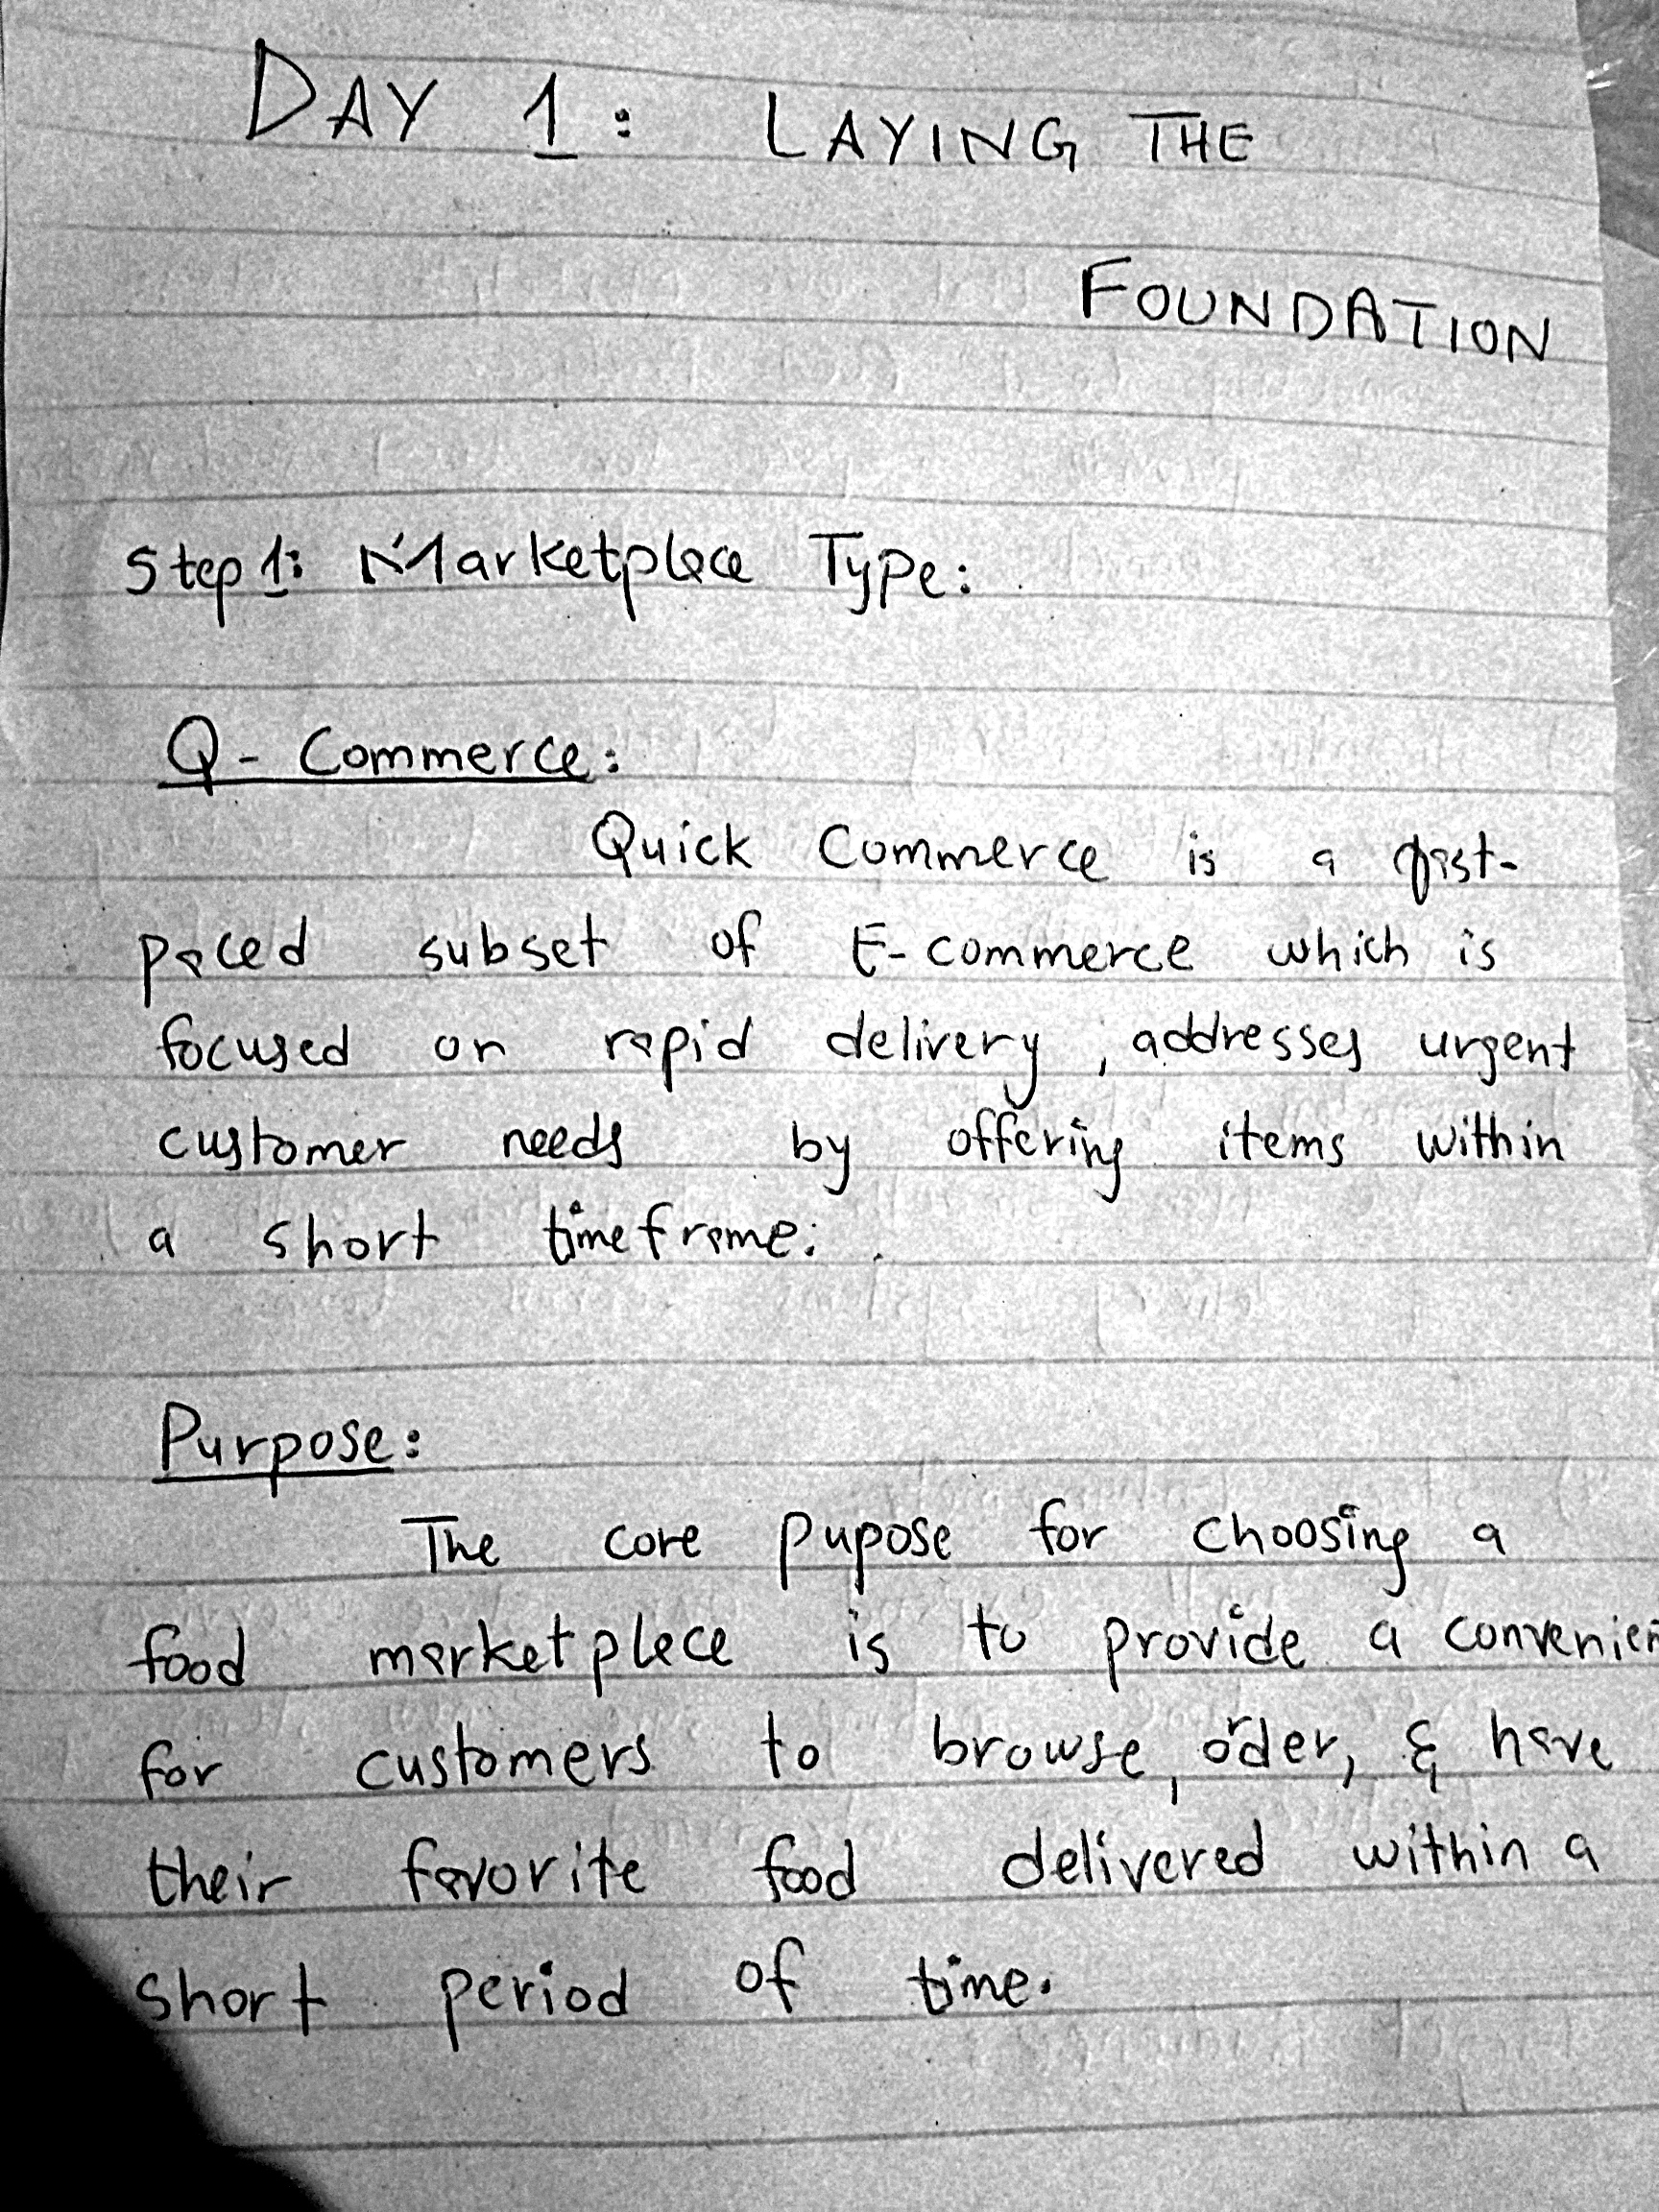 DAY 1: LAYING THE
FOUNDATION
Step 1: Marketplace Type:
Q- Commerce:
Quick Commerce is a fast-
paced subset of E-commerce which is
focused on rapid delivery, addresses urgent
customer needs by offering items within
a short timeframe.
Purpose:
The core pupose for choosing a
food marketplace is to provide a convenien
for customers to browse, order, & have
their favorite food delivered within a
short period of time.